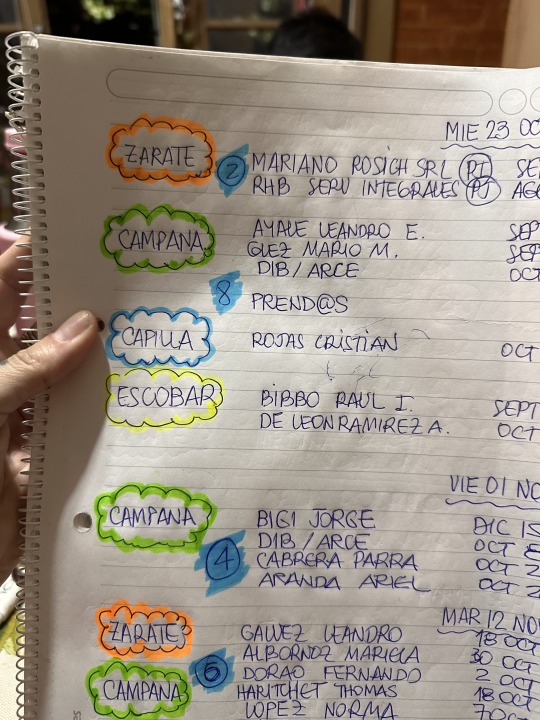 MIE 23 OC
ZARATE 2 MARIANO ROSICH SRL RI SE
RHB SERV INTEGRALES PJ AG
CAMPANA AYALE LEANDRO E. SEP
GLEZ MARIO M. SEP
DIB/ARCE OCT
8 PREND@S
CAPILLA ROJAS CRISTIAN OCT
ESCOBAR BIBBO RAUL I. SEPT
DE LEON RAMIREZ A. OCT
VIE 01 NO
CAMPANA BIGI JORGE DIC 15
DIB/ARCE OCT
4 CABRERA PARRA OCT 2
ARANDA ARIEL OCT 2
MAR 12 NOV
ZARATE GALVEZ LEANDRO 18 OCT
ALBORNOZ MARIELA 30 OCT
CAMPANA 6 DORAO FERNANDO 2 OCT
HARITCHET THOMAS 18 OCT
LOPEZ NORMA